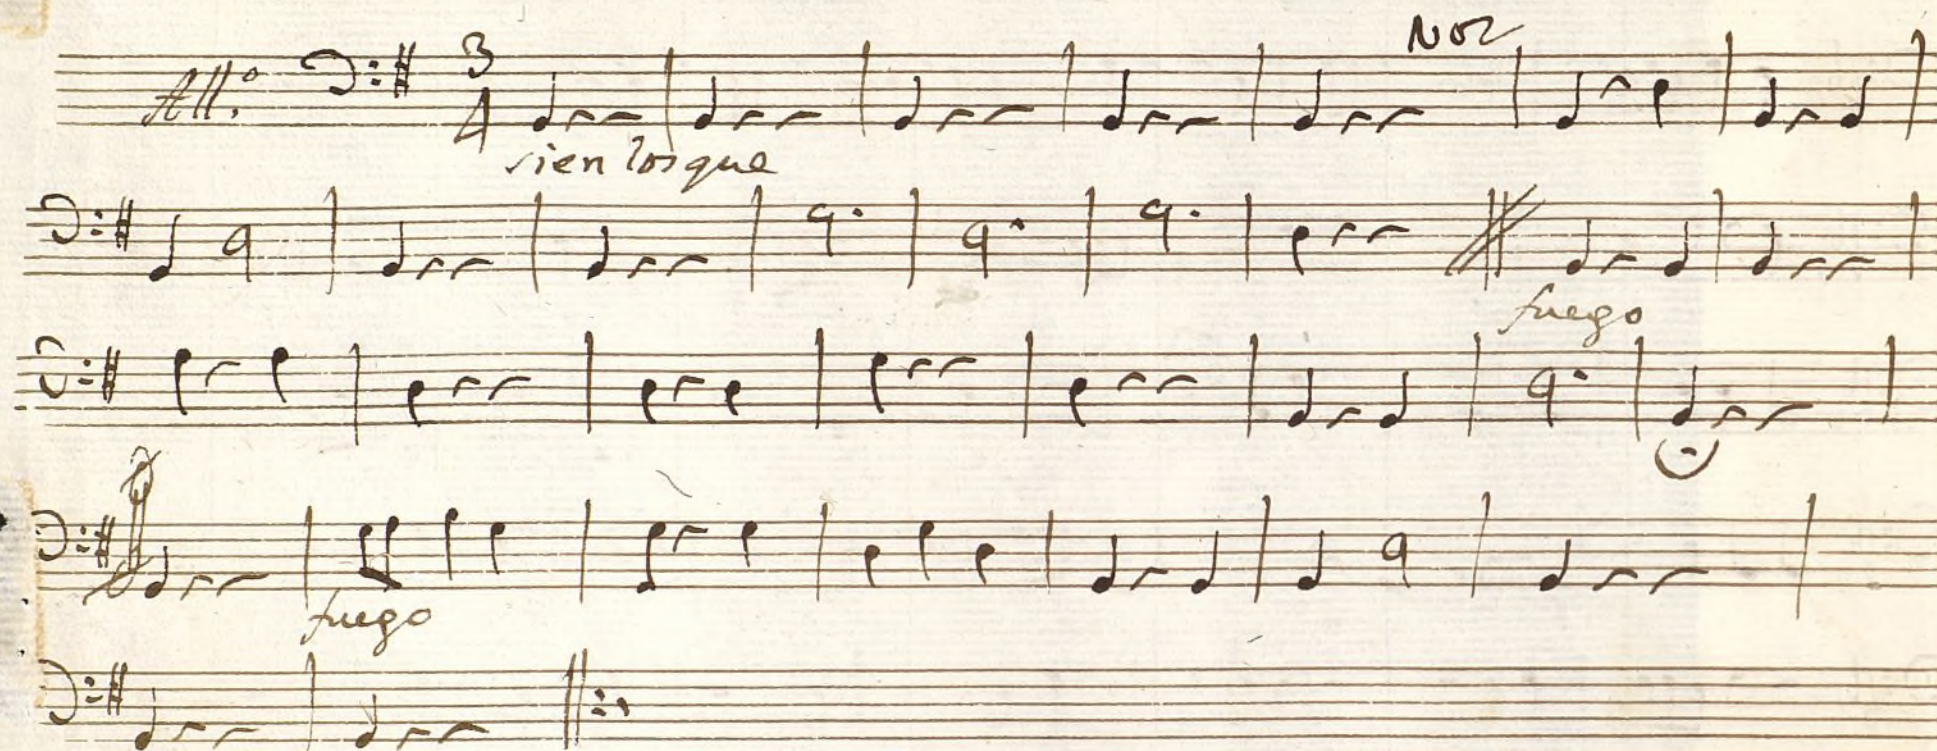 All.º
3
4
sien los que
fuego
fuego